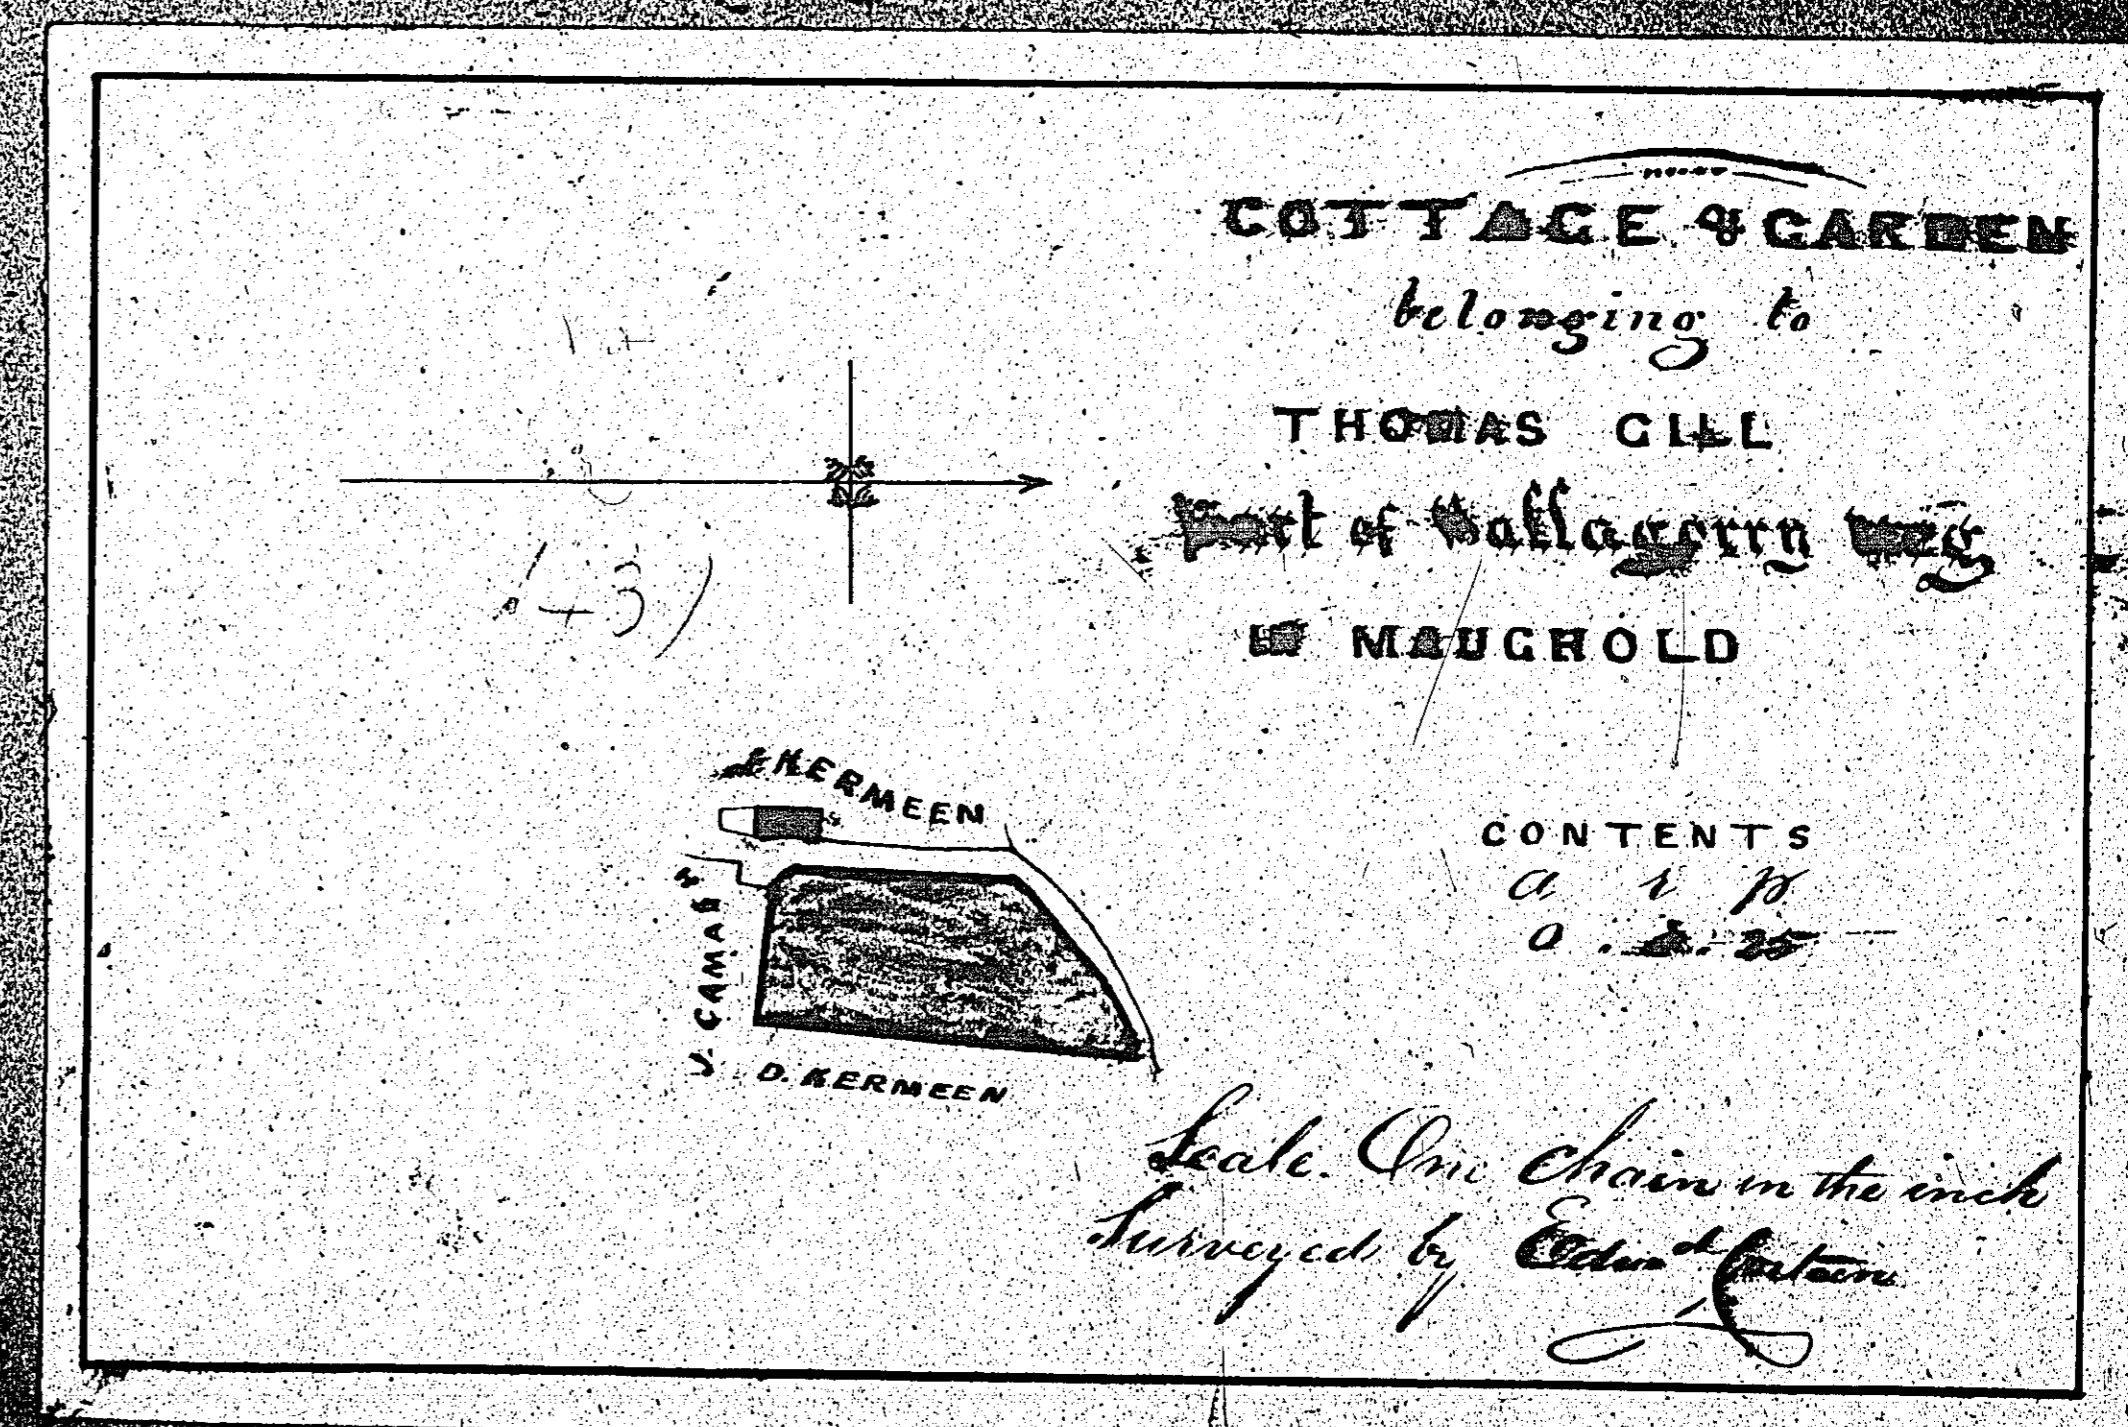 COTTAGE & GARDEN
belonging to
THOMAS GILL
Part of Ballagorry veg
IN MAUGHOLD
(43)
KERMEEN
CAMAR
D. KERMEEN
CONTENTS
a r p
0 . 25
Scale. One Chain in the inch
Surveyed by Edwd